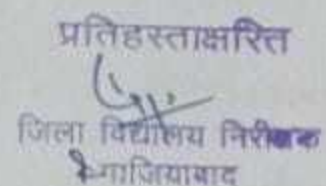 प्रतिहस्ताक्षरित
जिला विद्यालय निरीक्षक
गाजियाबाद